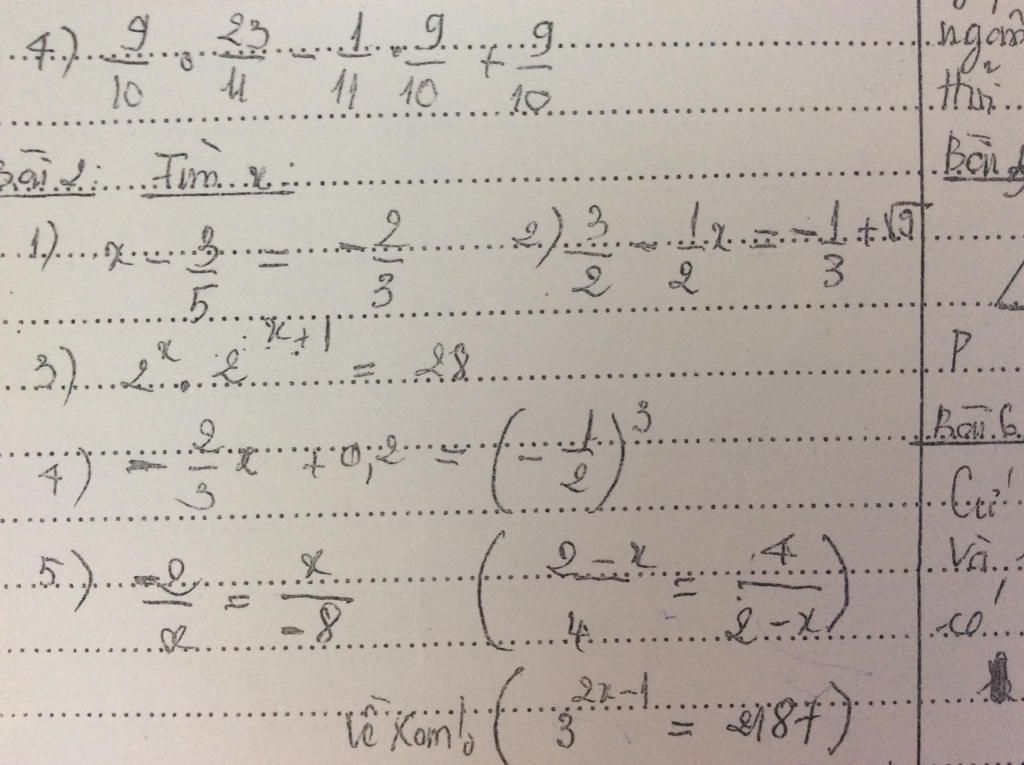 4) 9/10 . 23/11 - 1/11 . 9/10 + 9/10
Bài 2: Tìm x:
1) x - 3/5 = - 2/3 2) 3/2 - 1/2 x = - 1/3 + √9
3) 2^x . 2^(x+1) = 28
4) - 2/3 x + 0,2 = (- 1/2)^3
5) -2/x = x/-8 ( 2-x/4 = 4/2-x )
Về xem! ( 3^(2x-1) = 2187 )
Bài
P
Bài 6
Và
có